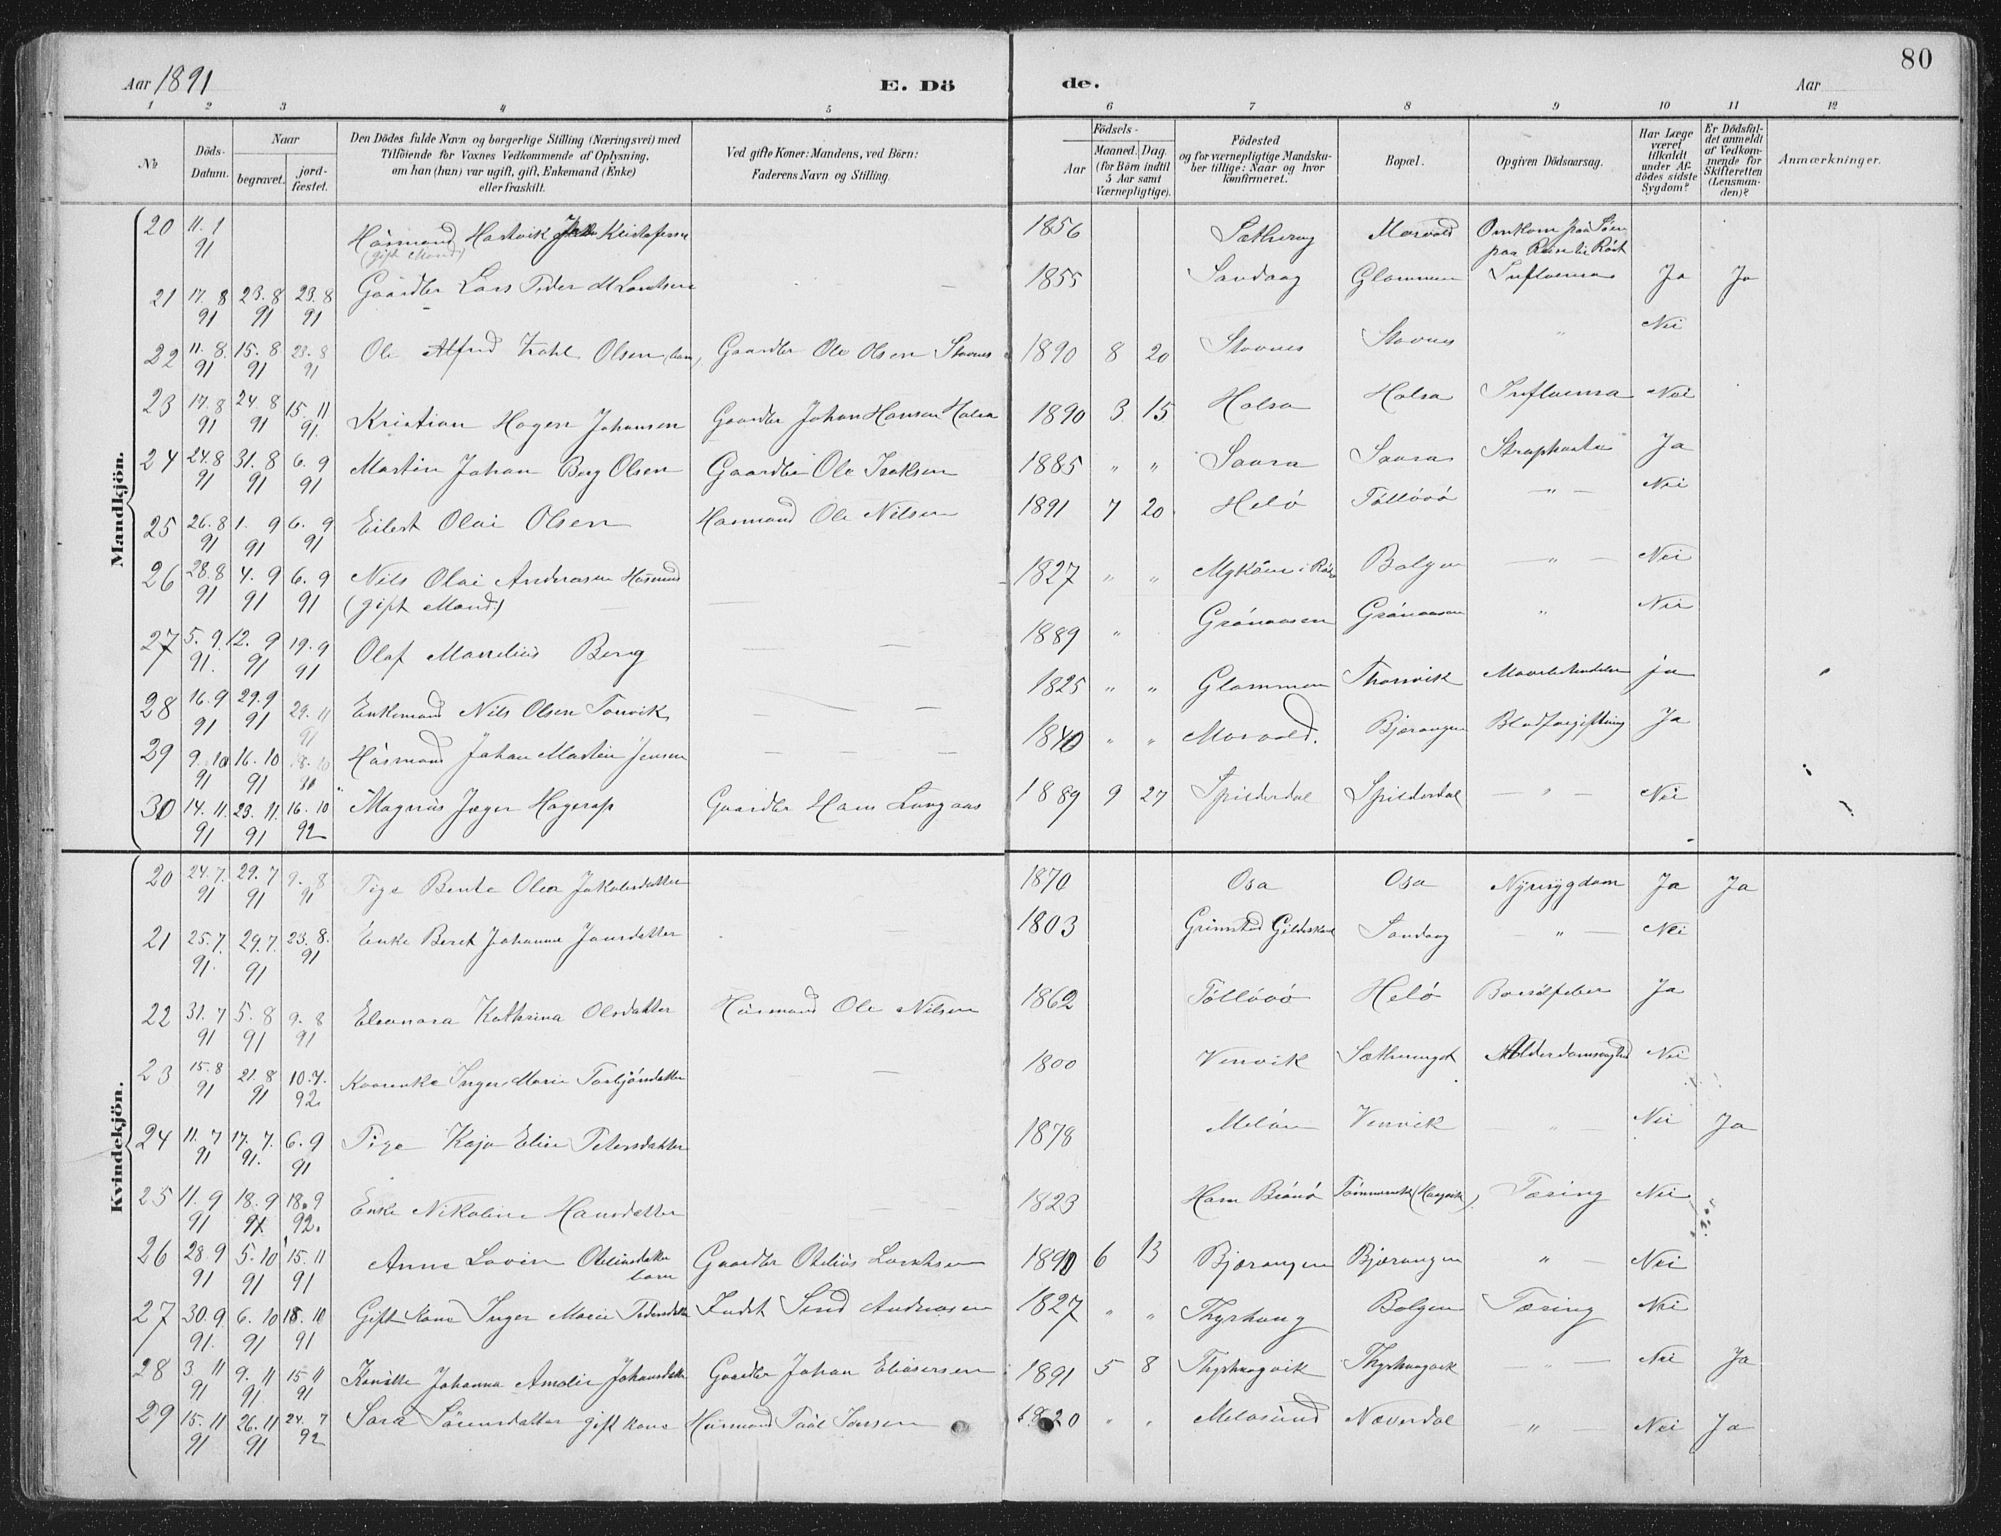 80
Aar 1891
E. Dö
de.
Aar
1 2 3 4 5 6 7 8 9 10 11 12
No
Döds-Datum.
Naar
begravet.
jord-fæstet.
Den Dödes fulde Navn og borgerlige Stilling (Næringsvei) med
Tilföiende for Voxnes Vedkommende af Oplysning,
om han (hun) var ugift, gift, Enkemand (Enke)
eller fraskilt.
Ved gifte Koner: Mandens, ved Börn:
Faderens Navn og Stilling.
Födsels-
Aar
Maaned. Dag.
(for Börn indtil 5 Aar samt Værnepligtige).
Födested
og for værnepligtige Mandska-
ber tillige: Naar og hvor
konfirmeret.
Bopæl.
Opgiven Dödsaarsag.
Har Læge været tilkaldt under Af-dödes sidste Sygdom?
Er Dödsfal-det anmeldt af Vedkom-mende for Skifteretten (Lensman-den)?
Anmærkninger.
Mandkjön.
20 11.1 91 Husmand Hartvik Kristofersen (gift Mand) 1856 Morvold Omkom paa Søen paa Reise til Røst
21 17.8 91 23.8 91 23.8 91 Gaardbr Lars Peder 1855 Sandaag Glommen Influensa Ja Ja
22 11.8 91 15.8 91 23.8 91 Ole Alfred Olsen Gaardbr Ole Olsen Stavnes 1890 8 20 Stavnes Stavnes " Nei
23 17.8 91 24.8 91 15.11 91 Kristian Hagen Johansen Gaardbr Johan Hansen Halsa 1890 3 15 Halsa Halsa Influensa Nei
24 24.8 91 31.8 91 6.9 91 Martin Johan Berg Olsen Gaardbr Ole Isaksen 1885 " " Saura Saura Ja
25 26.8 91 1.9 91 6.9 91 Eilert Olai Olsen Husmand Ole Nilsen 1891 7 20 Helö Töllövö " Nei
26 28.8 91 4.9 91 6.9 91 Nils Olai Andreasen Husmand (gift Mand) 1827 " " Bolgen " Nei
27 5.9 91 12.9 91 19.9 91 Olaf Berg 1889 " Grönaasen Grönaasen " Nei
28 16.9 91 29.9 91 29.11 91 Enkemand Nils Olsen Torsvik 1825 " " Glommen Thorsvik ja
29 9.10 91 16.10 91 Husmand Johan Martin Jensen 1840 " " Morvold. Bjærangen Blodforgiftning Ja
30 14.11 91 23.11 91 16.10 92 Magnus Jæger Hagerup Gaardbr Hans 1889 9 27 Spilderdal Spilderdal " Nei
Kvindekjön.
20 24.7 91 29.7 91 9.8 91 Pige Bente Olea Jakobsdatter 1870 Osa Osa Nyresygdom Ja Ja
21 25.7 91 29.7 91 23.8 91 Enke Beret Johanna Jonsdatter 1803 Grimstad Gildeskaal Sandaag " Nei
22 31.7 91 5.8 91 9.8 91 Eleonora Kathrina Olsdatter Husmand Ole Nilsen 1862 Töllövö Helö Barselfeber Ja
23 15.8 91 21.8 91 10.7 92 Inger Marie Torbjörnsdatter 1800 Venvik Alderdomssvaghed Nei
24 11.7 91 17.7 91 6.9 91 Pige Kaja Elise Petersdatter 1878 Melöen Venvik " Nei Ja
25 11.9 91 18.9 91 18.9 92 Enke Nikoline Hansdatter 1823 Tæring Nei
26 28.9 91 5.10 91 15.11 91 Anne Lovise Oteliusdatter barn Gaardbr Otelius Lorntsen 1890 6 13 Bjærangen Bjærangen " Nei
27 30.9 91 6.10 91 18.10 91 Gift Kone Inger Marie Pedersdatter Andreasen 1827 " " Thyshaug Bolgen Tæring Nei
28 3.11 91 9.11 91 15.11 91 Johanna Amalie Johansdatter Gaardbr Johan Eliasersen 1891 5 8 Thyshaugvik Thyshaugvik " Nei Ja
29 15.11 91 26.11 91 24.7 92 Sara Sörensdatter gift Kone Husmand Paal Jensen 1820 " " Melösund Næverdal " Nei Ja